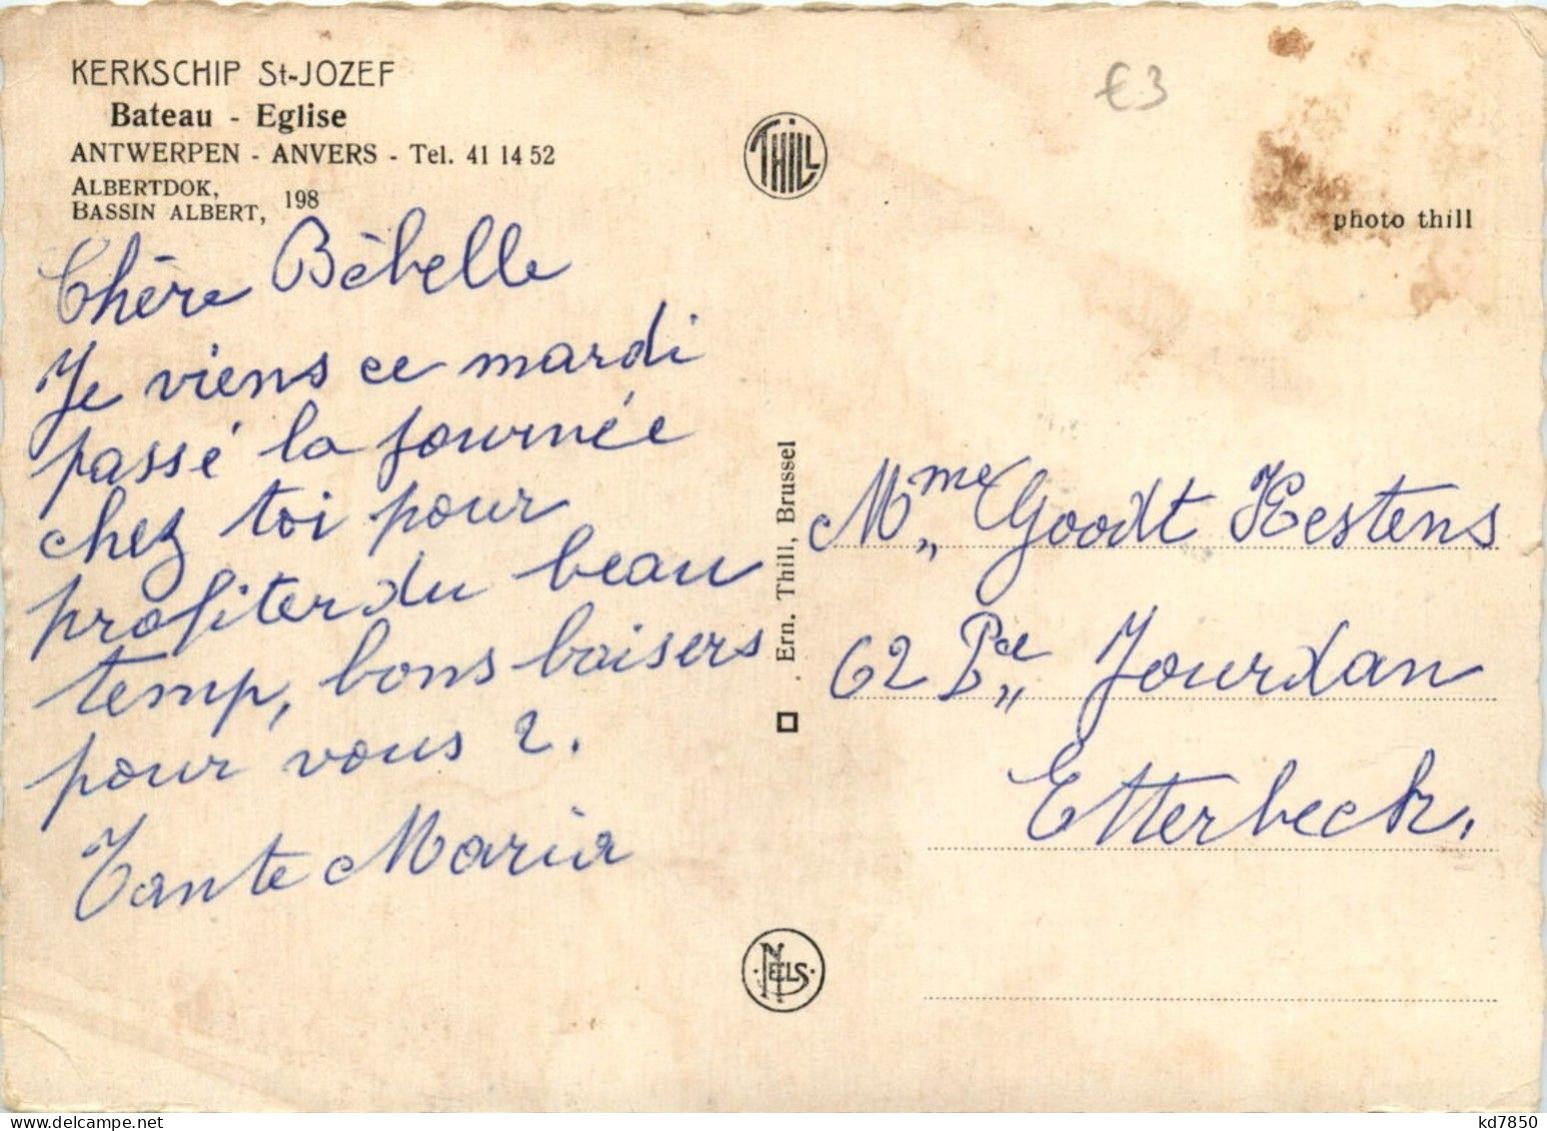 KERKSCHIP St-JOZEF
Bateau - Eglise
ANTWERPEN - ANVERS - Tel. 41 14 52
ALBERTDOK,
BASSIN ALBERT, 198
THILL
€3
photo thill
Chère Bèbelle
Je viens ce mardi
passé la journée
chez toi pour
profiter du beau
temp, bons baisers
pour vous 2.
Tante Maria
Ern. Thill, Brussel
NELS
Mme Goodt Kestens
62 Pce Jourdan
Etterbeek.
kd7850